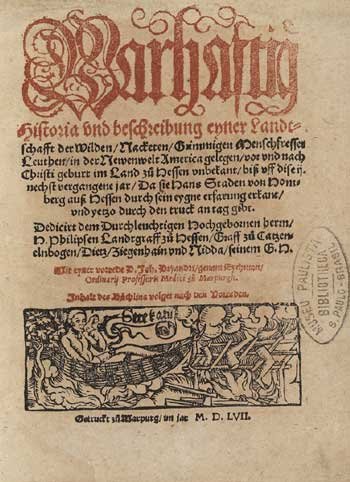 Warhaftig
Historia vnd beschreibung eyner Landt-
schafft der Wilden/ Nacketen/ Grimmigen Menschfresser
Leuthen/ in der Newenwelt America gelegen/ vor vnd nach
Christi geburt im Land zů Hessen vnbekant/ biß vff dise ij.
nechst vergangene jar/ Da sie Hans Staden von Hom-
berg auß Hessen durch sein eygne erfarung erkant/
vnd yetzo durch den truck an tag gibt.
Dedicirt dem Durchleuchtigen Hochgebornen herrn/
H. Philipsen Landtgraff zů Hessen/ Graff zů Catzen-
elnbogen/ Dietz/ Ziegenhain vnd Nidda/ seinem G. H.
Mit eyner vorrede D. Joh. Dryandri/ genant Eychman/
Ordinarij Professoris Medici zů Marpurgk.
Inhalt des Büchlins volget nach den Vorreden.
Getruckt zů Marpurg/ im jar M. D. LVII.
MUSEU PAULISTA
BIBLIOTHECA
S. PAULO-BRASIL